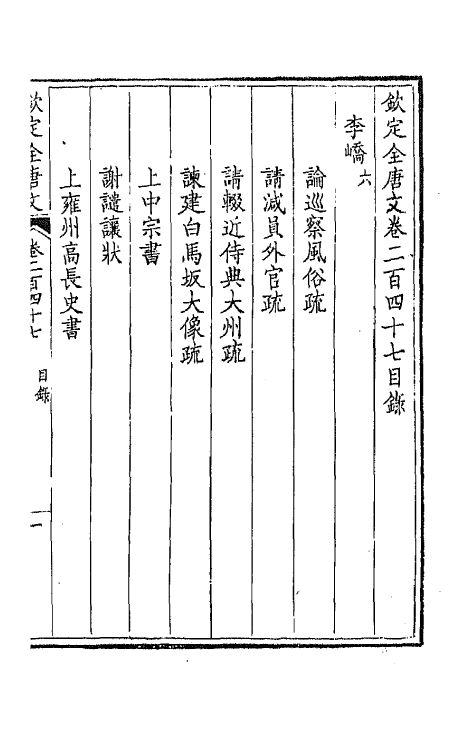 欽定全唐文卷二百四十七目錄
李嶠六
論巡察風俗疏
請減員外官疏
請輟近侍典大州疏
諫建白馬坂大像疏
上中宗書
謝譴讓狀
上雍州高長史書
欽定全唐文 卷二百四十七 目錄 一